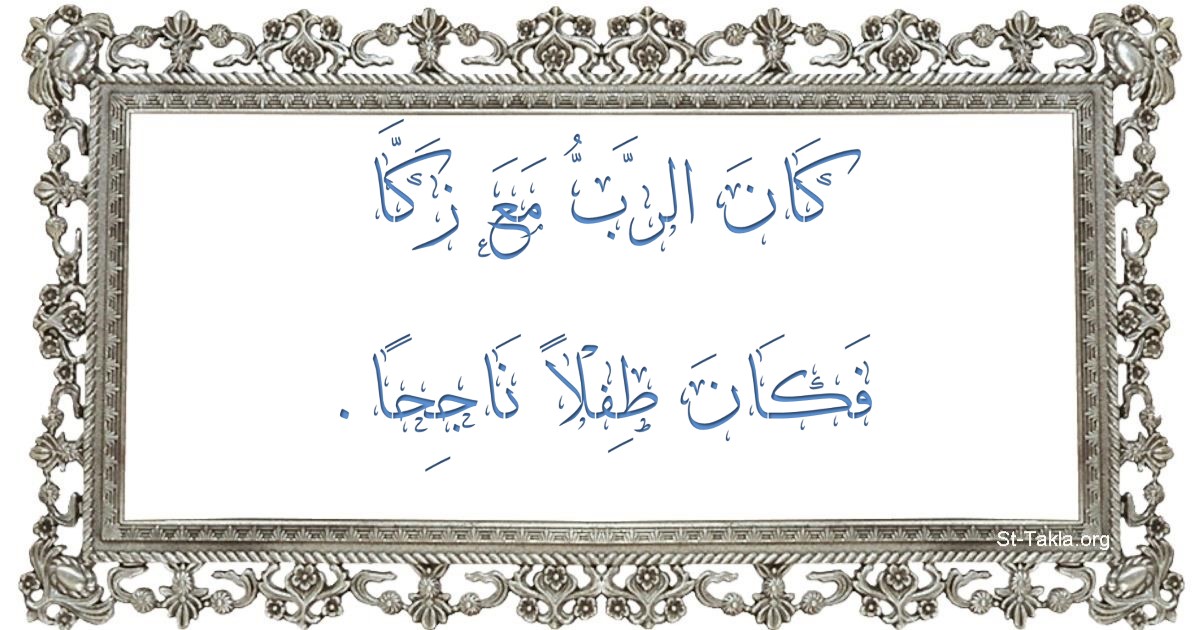 كَانَ الرَّبُّ مَعَ زَكَّا
فَكَانَ طِفْلاً نَاجِحًا .
St-Takla.org